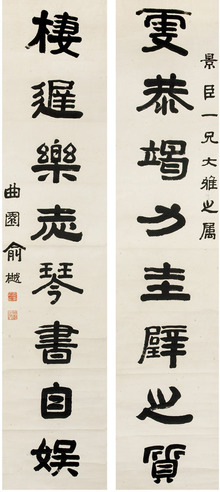 景臣一兄大雅之属
虔恭竭力圭璧之質
棲遲樂志琴書自娱
曲園俞樾